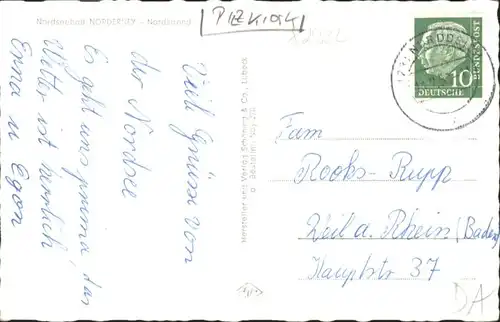 Nordseebad NORDERNEY - Nordstrand
PIZKIOK
Viele Grüsse von
der Nordsee
Es geht uns prima, das
Wetter ist herrlich
Erna u Egon
Hersteller und Verlag Schöning & Co., Lübeck
DEUTSCHE
BUNDESPOST
10
Fam
Rooks-Rupp
Weil a. Rhein (Baden)
Hauptstr 37
DA